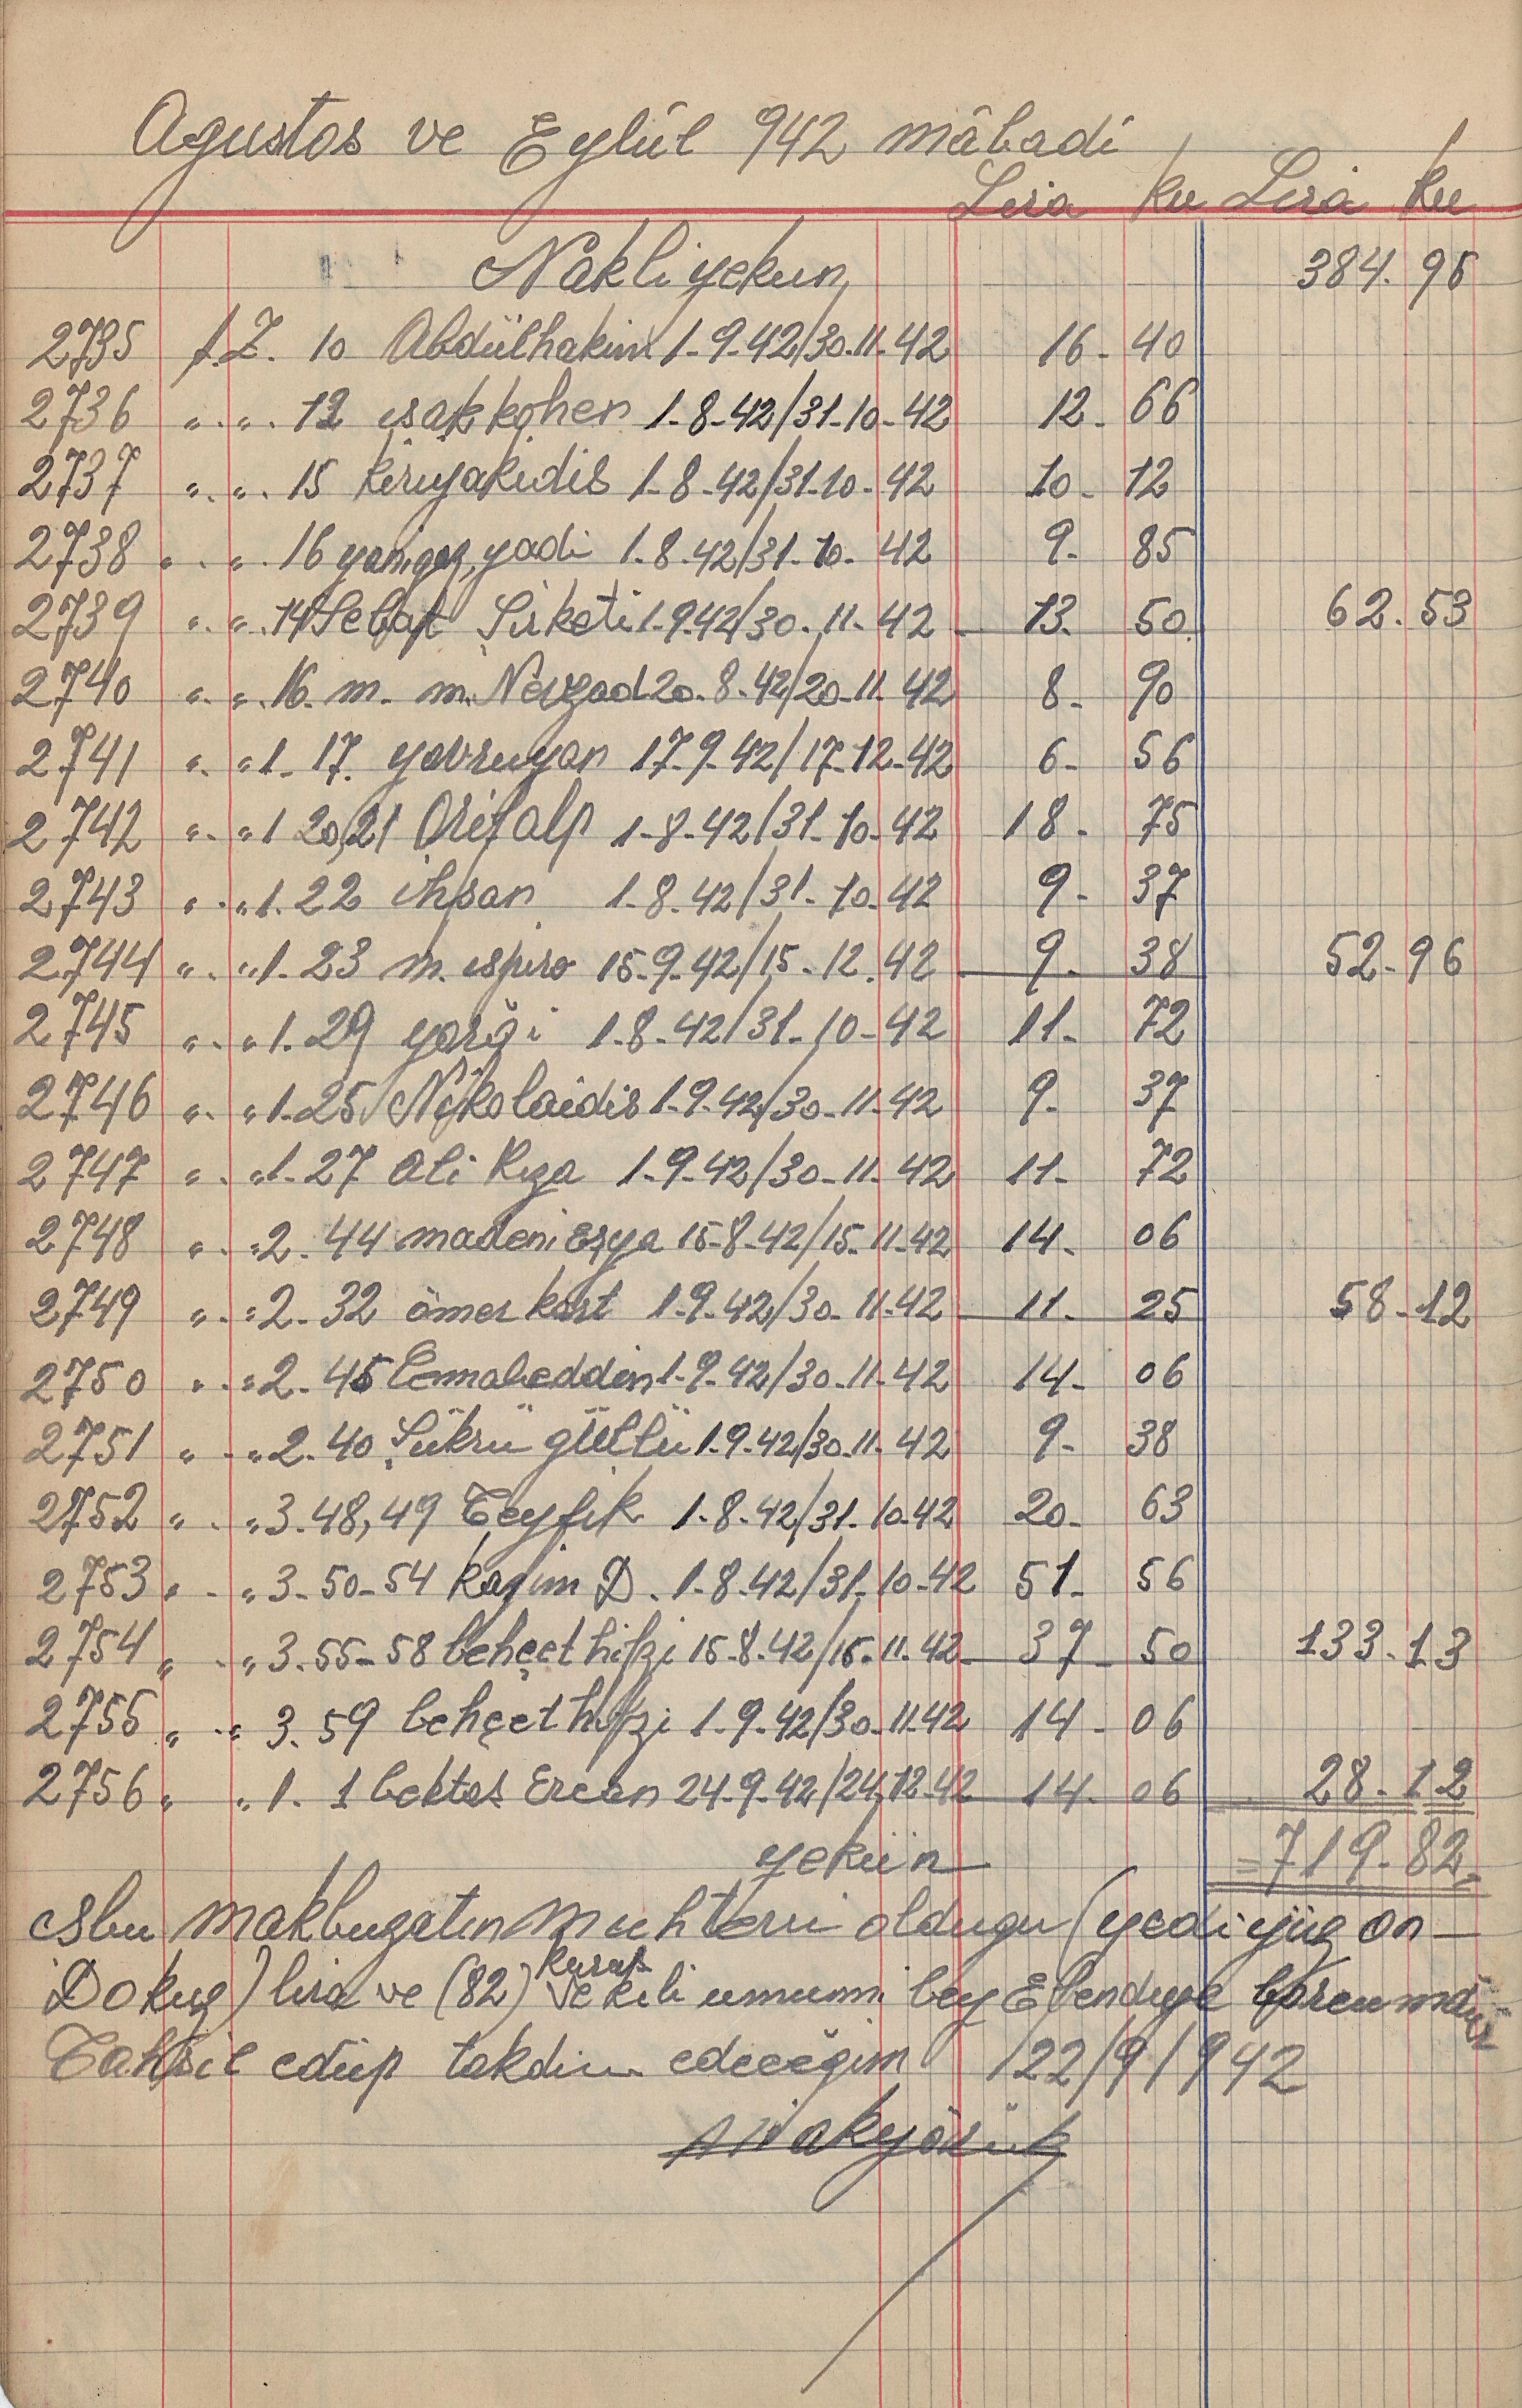 Agustos ve Eylûl 942 mâbadi
Lira ku Lira ku
Nakli yekun 384. 96
2735 f. Z. 10 Abdülhakim 1-9-42/30-11-42 16- 40
2736 " " 12 isak kohen 1-8-42/31-10-42 12- 66
2737 " " 15 kiryakidis 1-8-42/31-10-42 10- 12
2738 " " 16 yadi 1-8-42/31-10-42 9- 85
2739 " " 14 Sebat Şirketi 1-9-42/30-11-42 13- 50 62.53
2740 " " 16. m. m. Nevzad 20-8-42/20-11-42 8- 90
2741 " " 1. 17. yavruyan 17-9-42/17-12-42 6- 56
2742 " " 1 20,21 Arif alp 1-8-42/31-10-42 18- 75
2743 " " 1. 22 ihsan 1-8-42/31-10-42 9- 37
2744 " " 1. 23 m. ispiro 15-9-42/15-12-42 9- 38 52-96
2745 " " 1. 29 yorği 1-8-42/31-10-42 11- 72
2746 " " 1. 25 Nikolaidis 1-9-42/30-11-42 9- 37
2747 " " 1. 27 Ali Rıza 1-9-42/30-11-42 11- 72
2748 " " 2. 44 madeni Eşya 15-8-42/15-11-42 14- 06
2749 " " 2. 32 ömer kart 1-9-42/30-11-42 11- 25 58-12
2750 " " 2. 45 Cemaleddin 1-9-42/30-11-42 14- 06
2751 " " 2. 40 Şükrü güllü 1-9-42/30-11-42 9- 38
2752 " " 3. 48,49 Teyfik 1-8-42/31-10-42 20- 63
2753 " " 3. 50-54 kazim D. 1-8-42/31-10-42 51- 56
2754 " " 3. 55-58 behçet hifzi 15-8-42/15-11-42 37- 50 133-13
2755 " " 3. 59 behçet hifzi 1-9-42/30-11-42 14- 06
2756 " " 1. 1 bektaş Ercan 24-9-42/24-12-42 14- 06 28-12
yekün =719-82
isbu makbuzatın muhtevi oldugu (yedi yüz on
Dokuz) lira ve (82) kuruş vekili umumi bey Efendiye
Tahsil edüp takdim edeceğim 22/9/942